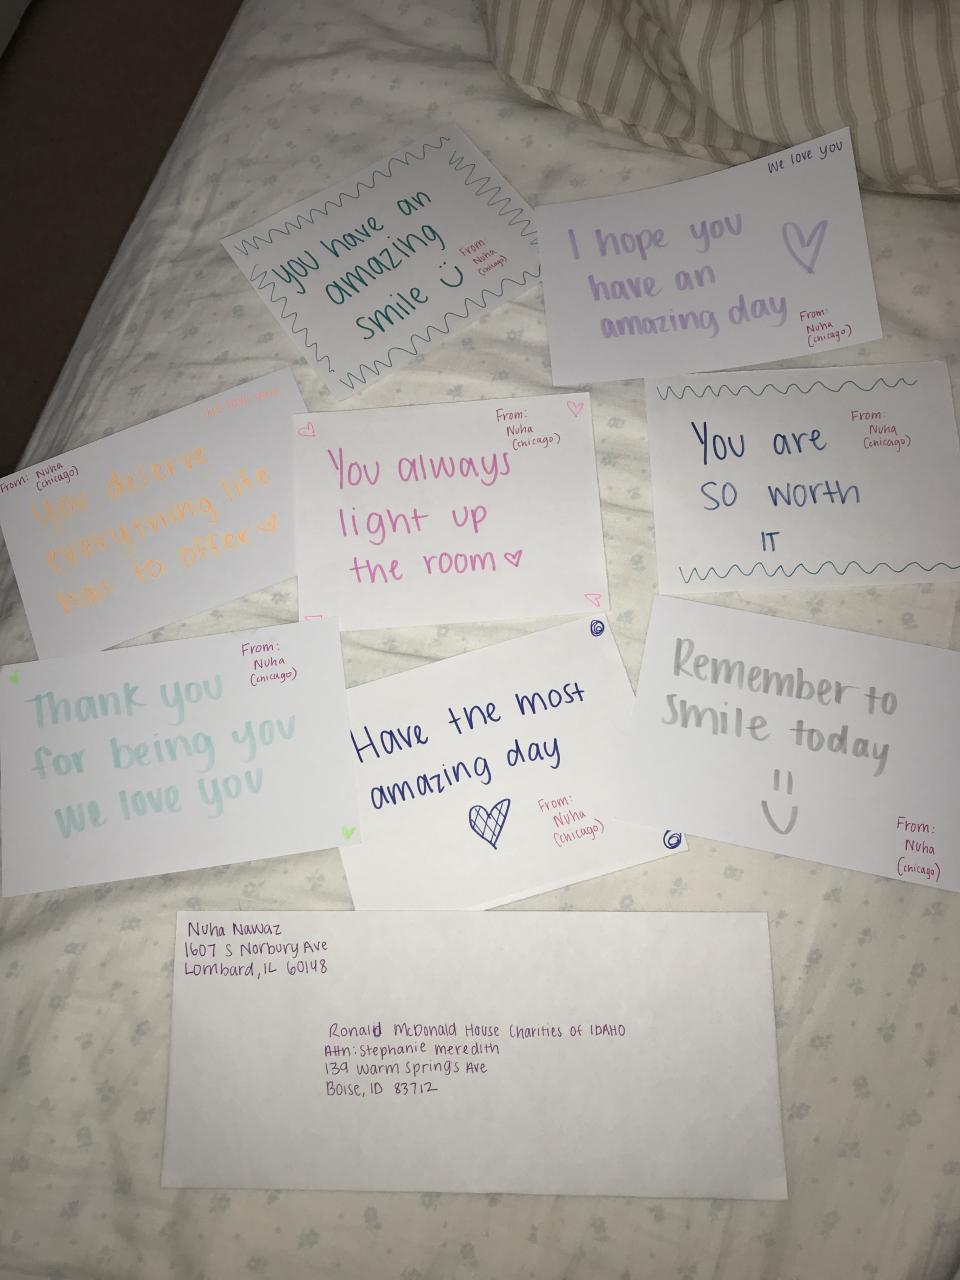 you have an
amazing
smile
From
Nuha
(chicago)
We love you
I hope you
have an
amazing day
From:
Nuha
(chicago)
We love you
From: Nuha
(chicago)
You deserve
everything life
has to offer
From:
Nuha
(chicago)
You always
light up
the room
From:
Nuha
(chicago)
You are
so worth
IT
From:
Nuha
(chicago)
Thank you
for being you
we love you
Have the most
amazing day
From:
Nuha
(chicago)
Remember to
smile today
From:
Nuha
(chicago)
Nuha Nawaz
1607 S Norbury Ave
Lombard, IL 60148
Ronald McDonald House Charities of IDAHO
Attn: Stephanie meredith
139 Warm Springs Ave
Boise, ID 83712